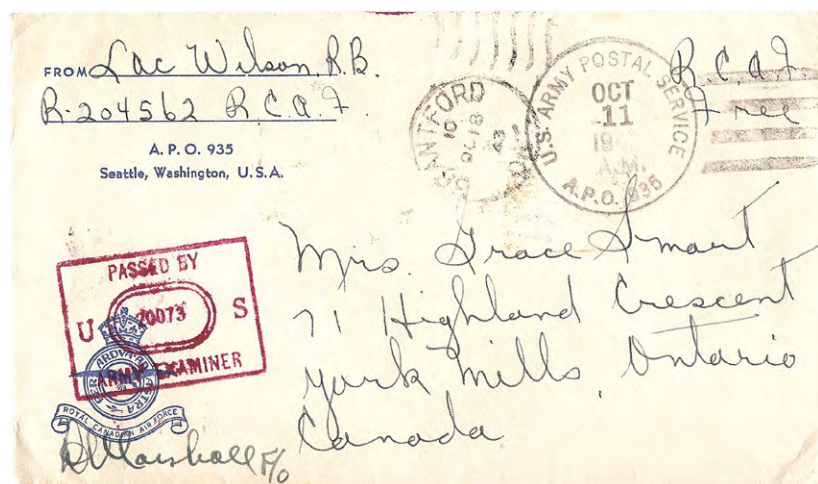 FROM Lac Wilson, R.B.
R-204562 R.C.A.F.
A. P. O. 935
Seattle, Washington, U. S. A.
BRANTFORD
10
OC 18
43
U.S. ARMY POSTAL SERVICE
OCT
11
19
A.M.
A.P.O. 935
R.C.A.F.
Free
PASSED BY
U 20073 S
ARMY EXAMINER
PER ARDVA AD ASTRA
ROYAL CANADIAN AIR FORCE
Marshall F/O
Mrs. Grace Smart
71 Highland Crescent
York Mills, Ontario
Canada